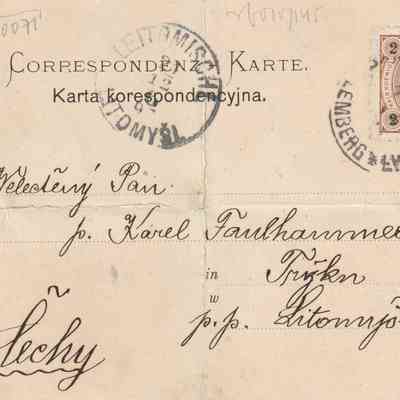 CORRESPONDENZ-KARTE.
Karta korespondencyjna.
LEITOMISCHL
LITOMYŠL
LEMBERG * LW
2
2
Velectěný Pan
p. Karel Faulhammer
in
w
p.p. Litomyš
Čechy